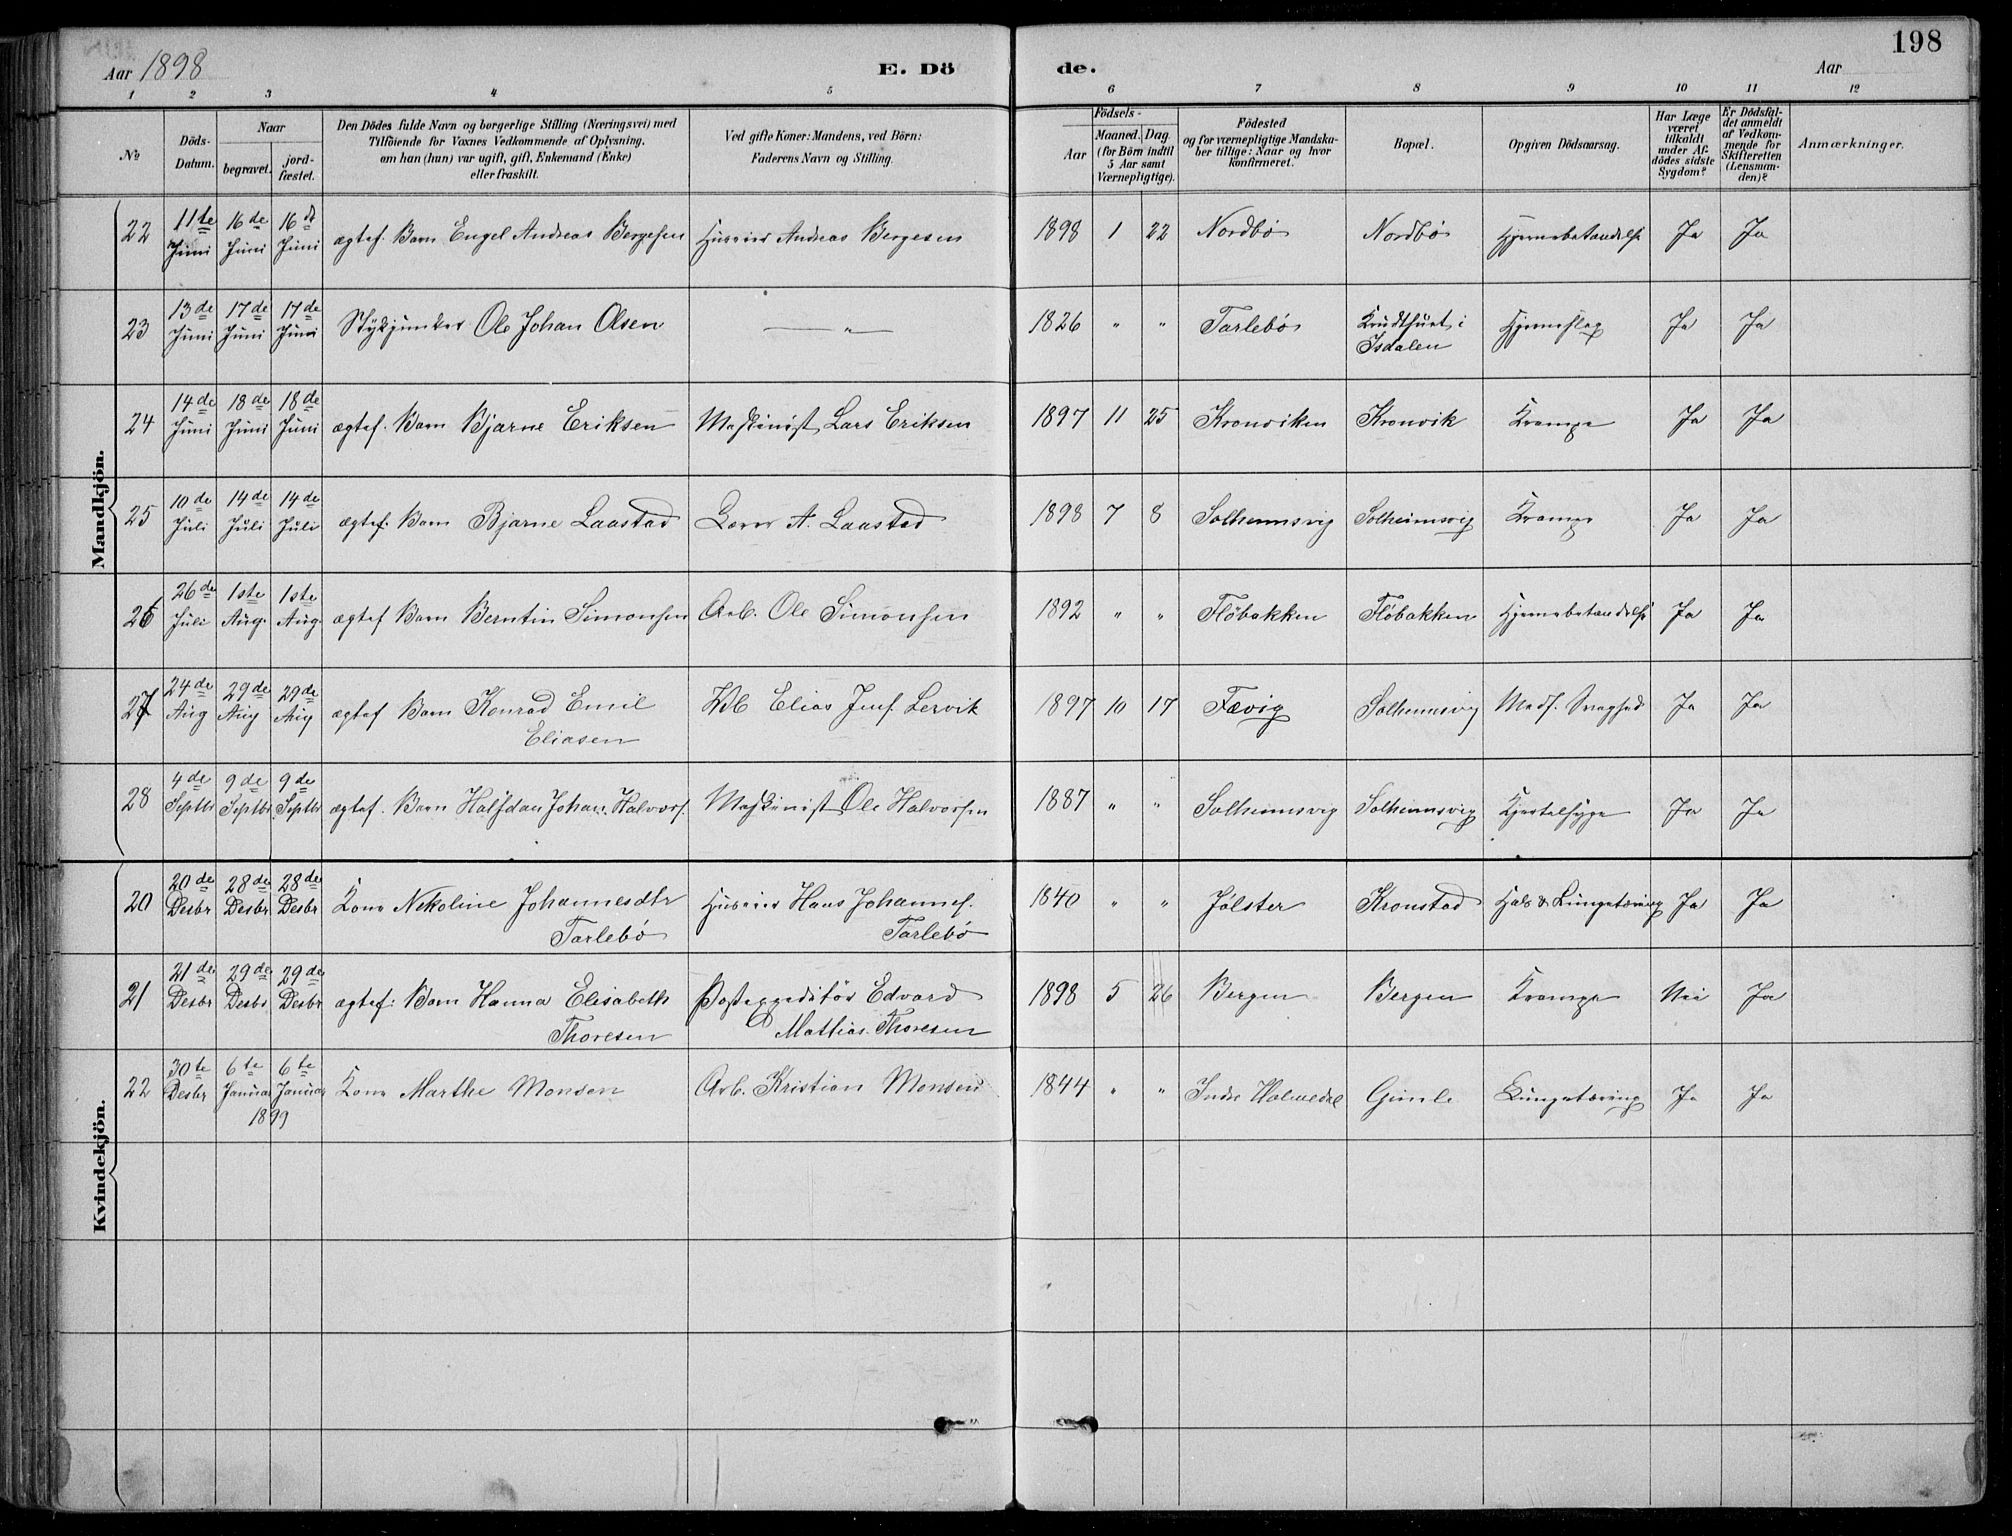 Aar 1898
E. Dö
de.
Aar
198
1 2 3 4 5 6 7 8 9 10 11 12
No
Döds-
Datum.
Naar
begravet.
jord-
fæstet.
Den Dödes fulde Navn og borgerlige Stilling (Næringsvei) med
Tilföiende for Voxnes Vedkommende af Oplysning,
om han (hun) var ugift, gift, Enkemand (Enke)
eller fraskilt.
Ved gifte Koner: Mandens, ved Börn:
Faderens Navn og Stilling.
Födsels-
Aar
Maaned. Dag.
(for Börn indtil
5 Aar samt
Værnepligtige).
Födested
og for værnepligtige Mandska-
ber tillige: Naar og hvor
konfirmeret.
Bopæl.
Opgiven Dödsaarsag.
Har Læge
været
tilkaldt
under Af-
dødes sidste
Sygdom?
Er Dödsfal-
det anmeldt
af Vedkom-
mende for
Skifteretten
(Lensman-
den)?
Anmærkninger.
Mandkjön.
22 11te Juni 16de Juni 16de Juni ægtef. Barn Engel Andreas Bergesen Huseier Andreas Bergesen 1898 1 22 Nordbö Nordbö Hjernebetændelse Ja Ja
23 13de Juni 17de Juni 17de Juni Stykjunker Ole Johan Olsen — „ — 1826 „ „ Tarlebö Krudthuset i Isdalen Hjerneslag Ja Ja
24 14de Juni 18de Juni 18de Juni ægtef. Barn Bjarne Eriksen Maskinist Lars Eriksen 1897 11 25 Kronviken Kronvik Krampe Ja Ja
25 10de Juli 14de Juli 14de Juli ægtef. Barn Bjarne Laastad A. Laastad 1898 7 8 Solheimsvig Solheimsvig Krampe Ja Ja
26 26de Juli 1ste Aug. 1ste Aug ægtef Barn Berntin Simonsen Arb. Ole Simonsen 1892 „ „ Flöbakken Flöbakken Hjernebetændelse Ja Ja
27 24de Aug 29de Aug 29de Aug ægtef Barn Konrad Emil
Eliasen Elias Lervik 1897 10 17 Fævig Solheimsvig Medf. Svaghed Ja Ja
28 4de Septbr 9de Septbr. 9de Septbr ægtef. Barn Halfdan Johan Halvors. Maskinist Ole Halvorsen 1887 „ „ Solheimsvig Solheimsvig Kjertelsyge Ja Ja
Kvindekjön.
20 20de Desbr 28de Desbr 28de Desbr Kone Nekoline Johannesdtr
Tarlebö Huseier Hans Johannes.
Tarlebö 1840 „ „ Jölster Kronstad Hals & Lungetæring Ja Ja
21 21de Desbr 29de Desbr 29de Desbr ægtef: Barn Hanna Elisabeth
Thoresen Postexpeditör Edvard
Mathias Thoresen 1898 5 26 Bergen Bergen Krampe Nei Ja
22 30te Desbr 6te Januar 6te Januar
1899 Kone Marthe Monsen Arb. Kristian Monsen 1844 „ „ Indre Holmedal Gimle Lungetæring Ja Ja